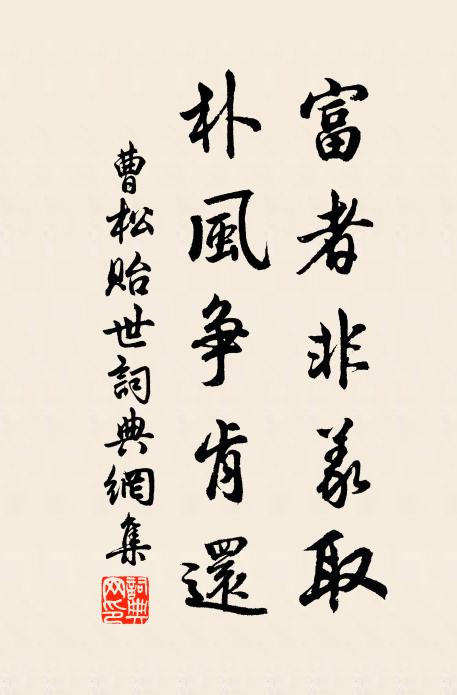 富者非義取
朴風爭肯還
曹松貽世詞典網集
詞典网印